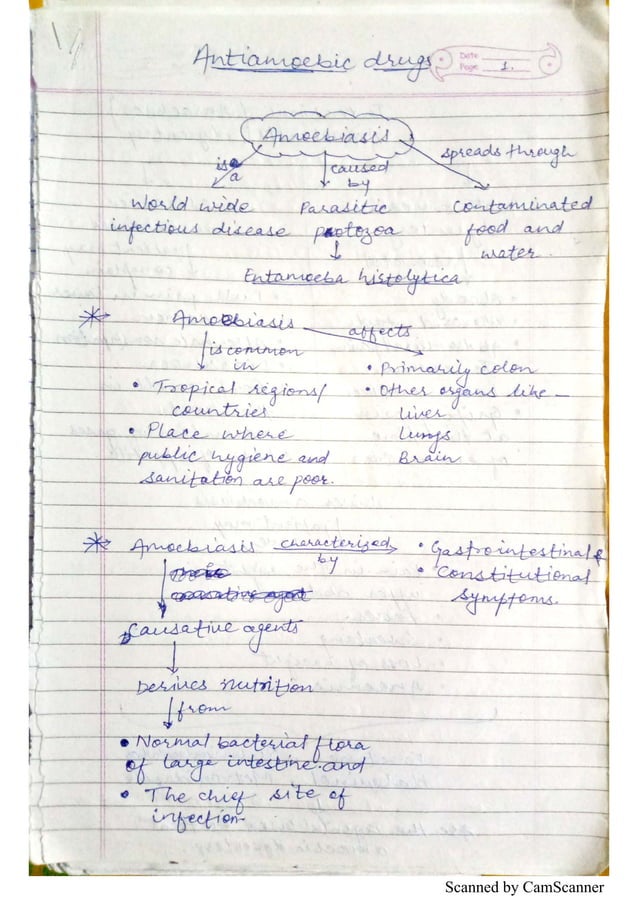 Antiamoebic drugs
Date
Page 1.
Amoebiasis
is a
caused by
spreads through
World wide
infectious disease
Parasitic
protozoa
Contaminated
food and
water.
Entamoeba histolytica
Amoebiasis
affects
is common
in
• Tropical regions/
countries
• Place where
public hygiene and
sanitation are poor.
• Primarily colon
• Other organs like –
Liver
Lungs
Brain
Amoebiasis characterized by
• Gastrointestinal &
• Constitutional
symptoms.
Causative agents
Derives nutrition
from
• Normal bacterial flora
of large intestine and
• The chief site of
infection.
Scanned by CamScanner